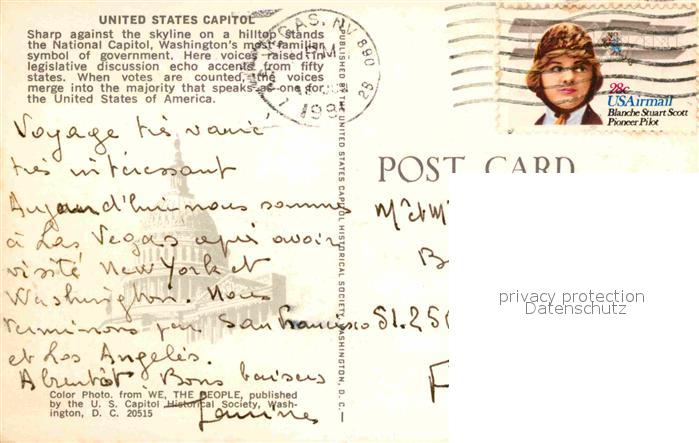 UNITED STATES CAPITOL
Sharp against the skyline on a hilltop stands
the National Capitol, Washington's most familiar
symbol of government. Here voices raised in
legislative discussion echo accents from fifty
states. When votes are counted, the voices
merge into the majority that speaks as one for
the United States of America.
Voyage très varié
très intéressant
Aujourd'hui nous sommes
à Las Vegas après avoir
visité New York et
Washington. Nous
terminons par San Francisco
et Los Angelès.
A bientôt. Bons baisers
Janine
Color Photo. from WE, THE PEOPLE, published
by the U. S. Capitol Historical Society, Wash-
ington, D. C. 20515
PUBLISHED BY THE UNITED STATES CAPITOL HISTORICAL SOCIETY, WASHINGTON, D. C.
VEGAS, NV 890
PM
28c
USAirmail
Blanche Stuart Scott
Pioneer Pilot
POST CARD
privacy protection
Datenschutz